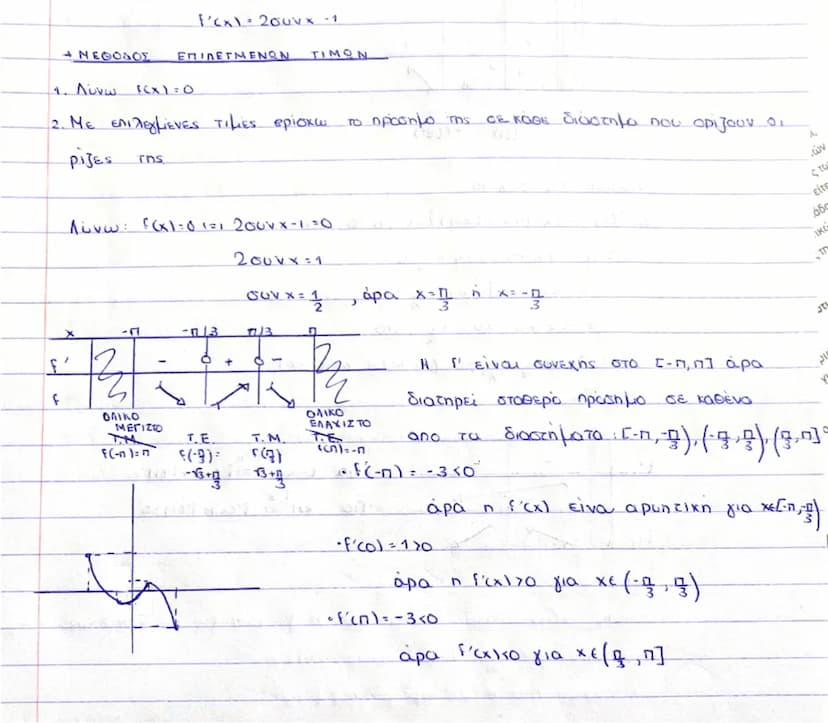 f'(x) = 2συνx - 1
→ ΜΕΘΟΔΟΣ ΕΠΙΛΕΓΜΕΝΩΝ ΤΙΜΩΝ
1. Λύνω f(x)=0
2. Με επιλεγμένες τιμές βρίσκω το πρόσημο της σε κάθε διάστημα που ορίζουν οι
ρίζες της
Λύνω: f'(x)=0 (=) 2συνx-1=0
2συνx=1
συνx=1/2, άρα x=π/3 ή x=-π/3
x -π -π/3 π/3 π
f' - 0 + 0 -
f
ΟΛΙΚΟ ΜΕΓΙΣΤΟ
Τ.Μ.
f(-π)=π
Τ.Ε.
f(-π/3)=
-√3+π/3
Τ.Μ.
f(π/3)
√3+π/3
ΟΛΙΚΟ ΕΛΑΧΙΣΤΟ
Τ.Ε.
f(π)=-π
Η f' είναι συνεχής στο [-π,π] άρα
διατηρεί σταθερό πρόσημο σε καθένα
απο τα διαστήματα: [-π,-π/3), (-π/3,π/3), (π/3,π]
· f'(-π) = -3<0
άρα η f'(x) είνα αρνητική για x∈[-π,-π/3)
· f'(0)=1>0
άρα η f'(x)>0 για x∈(-π/3,π/3)
· f'(π)=-3<0
άρα f'(x)<0 για x∈(π/3,π]